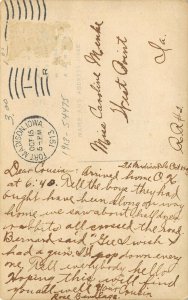 FORT MADISON, IOWA
OCT 16
5-PM
1913
3.00
1913-54475
Miss Caroline Menke
West Point
Ia.
Ft Madison Ia Oct
Dear Cousin: Arrived home O.K
at 6:40. Tell the boys they had
ought have been along on way
home, we saw about
rabbits all crossed the road
Bernard said, "Gee I wish I
had a gun, I'd pop down every
one. Tell everybody hello
Hope this will find
you all well. Write
Rose